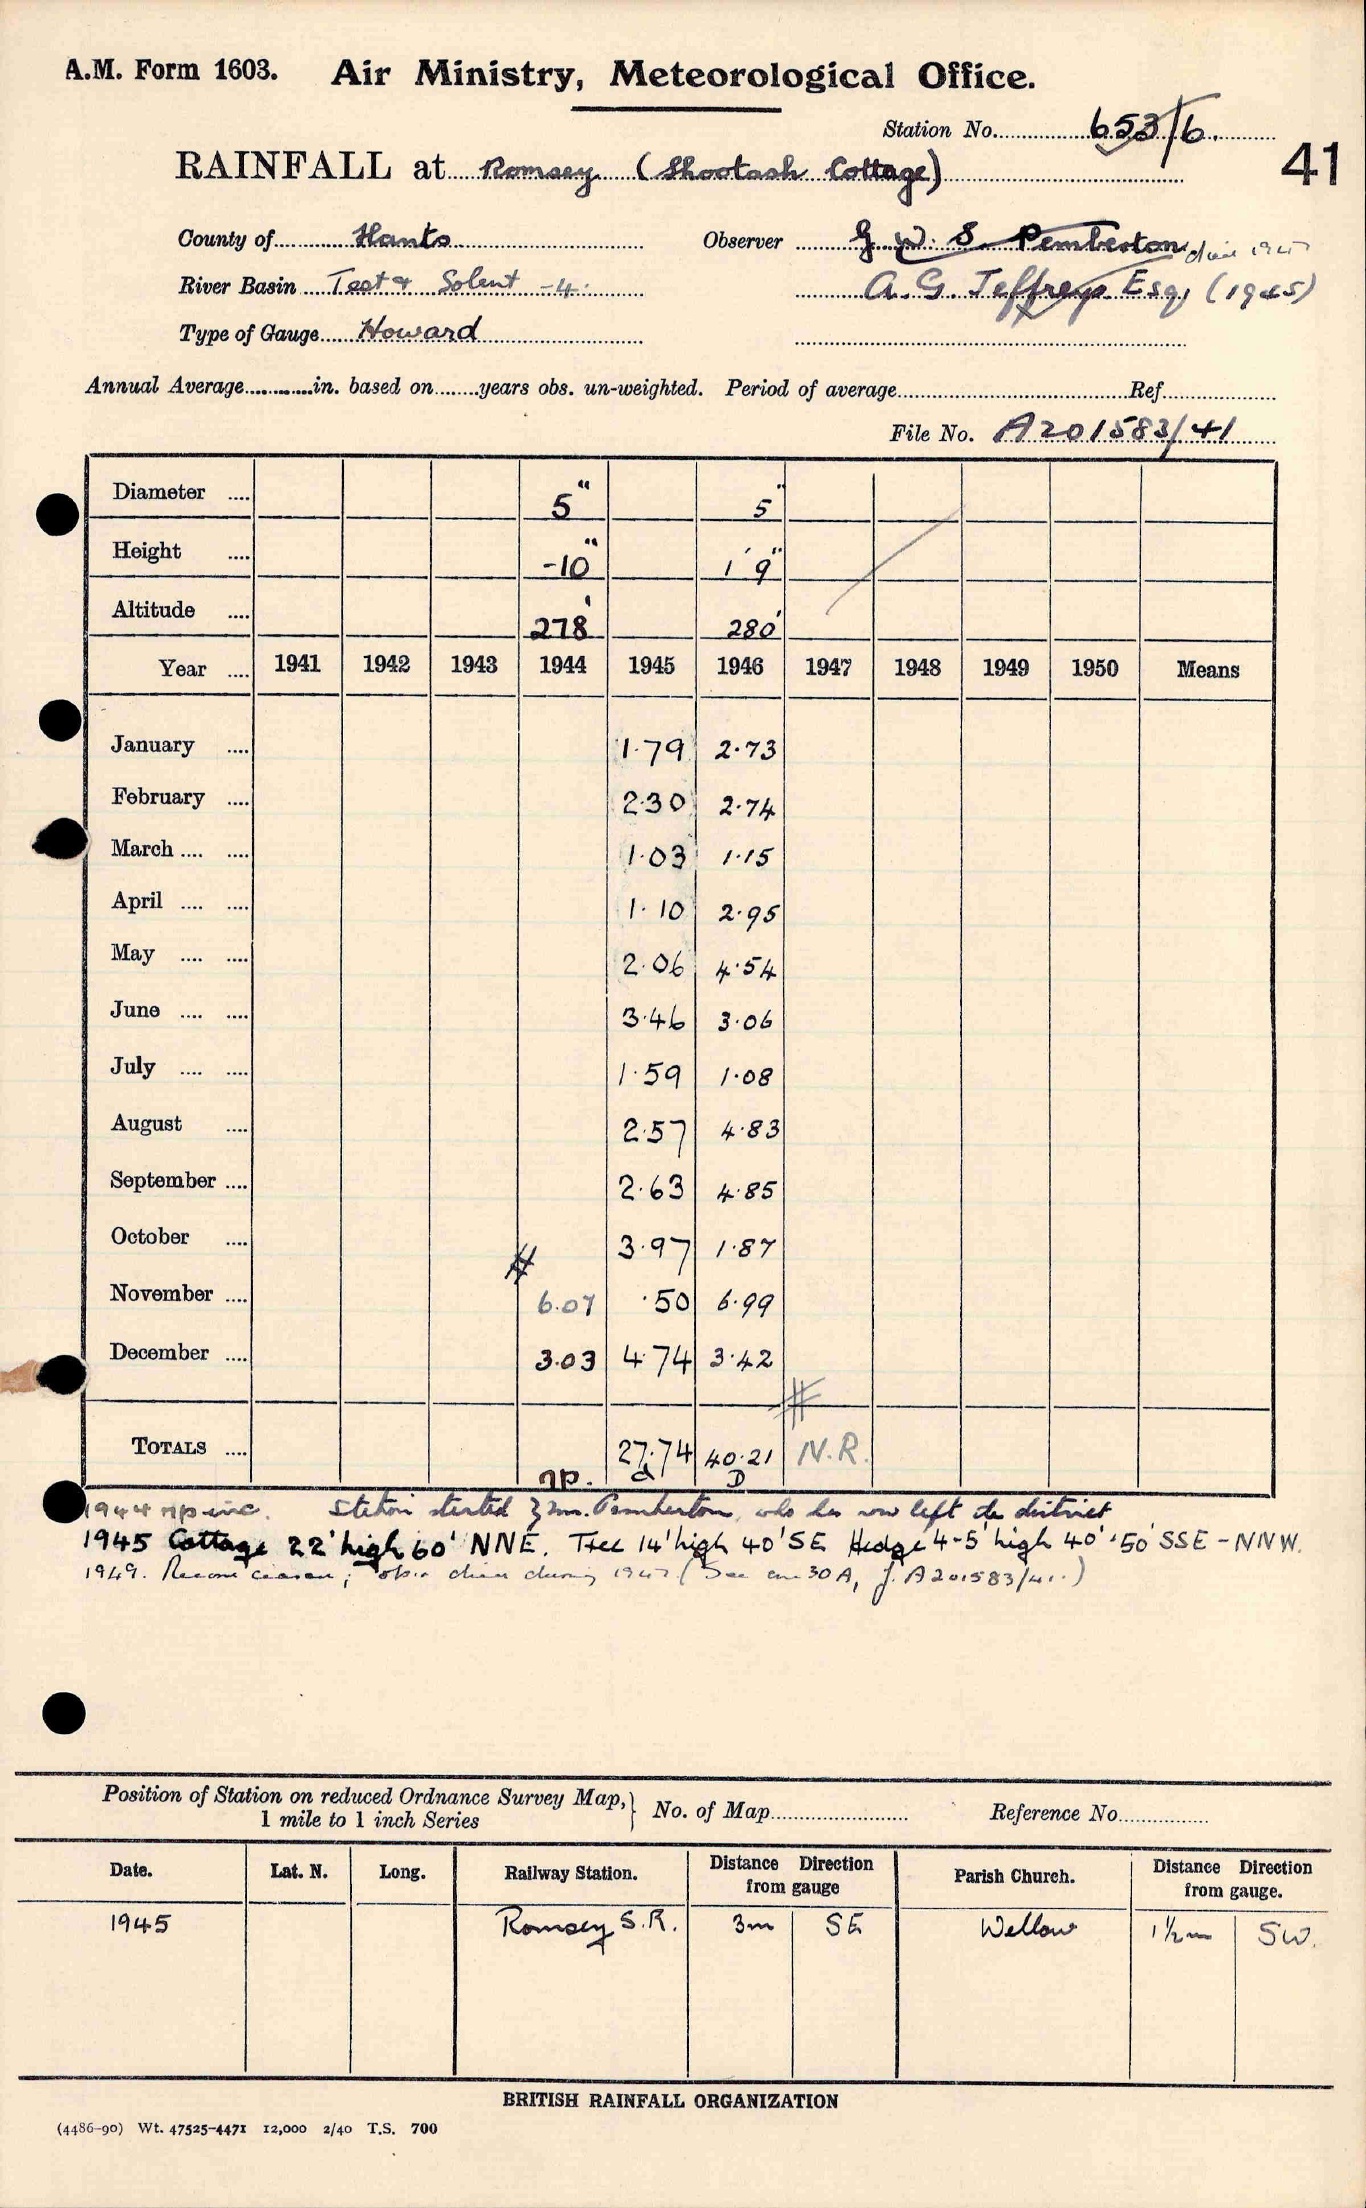 A.M. Form 1603. Air Ministry, Meteorological Office.
Station No. 653/6.
41
RAINFALL at Romsey (Shootash Cottage)
County of Hants Observer G W. S. Pemberton
River Basin Test & Solent -4. A. G. Jeffreys Esq, (1945)
Type of Gauge Howard
Annual Average in. based on years obs. un-weighted. Period of average Ref
File No. A201583/41
Diameter .... 5" 5"
Height .... -10" 1' 9"
Altitude .... 278' 280'
Year .... 1941 1942 1943 1944 1945 1946 1947 1948 1949 1950 Means
January .... 1.79 2.73
February .... 2.30 2.74
March .... .... 1.03 1.15
April .... .... 1.10 2.95
May .... .... 2.06 4.54
June .... .... 3.46 3.06
July .... .... 1.59 1.08
August .... 2.57 4.83
September .... 2.63 4.85
October .... 3.97 1.87
November .... 6.07 .50 6.99
December .... 3.03 4.74 3.42
TOTALS .... 27.74 40.21 N.R.
np. d D
1944 np inc. Station started by Mr. Pemberton, who has now left the district
1945 Cottage 22' high 60' NNE. Tree 14' high 40' SE Hedge 4-5' high 40'-50' SSE - NNW.
1949. Record ceased; obsr died during 1947 (See 30A, f. A201583/41.)
Position of Station on reduced Ordnance Survey Map, 1 mile to 1 inch Series } No. of Map Reference No.
Date. Lat. N. Long. Railway Station. Distance Direction from gauge Parish Church. Distance Direction from gauge.
1945 Romsey S.R. 3m SE Wellow 1½m SW.
BRITISH RAINFALL ORGANIZATION
(4486-90) Wt. 47525-4471 12,000 2/40 T.S. 700